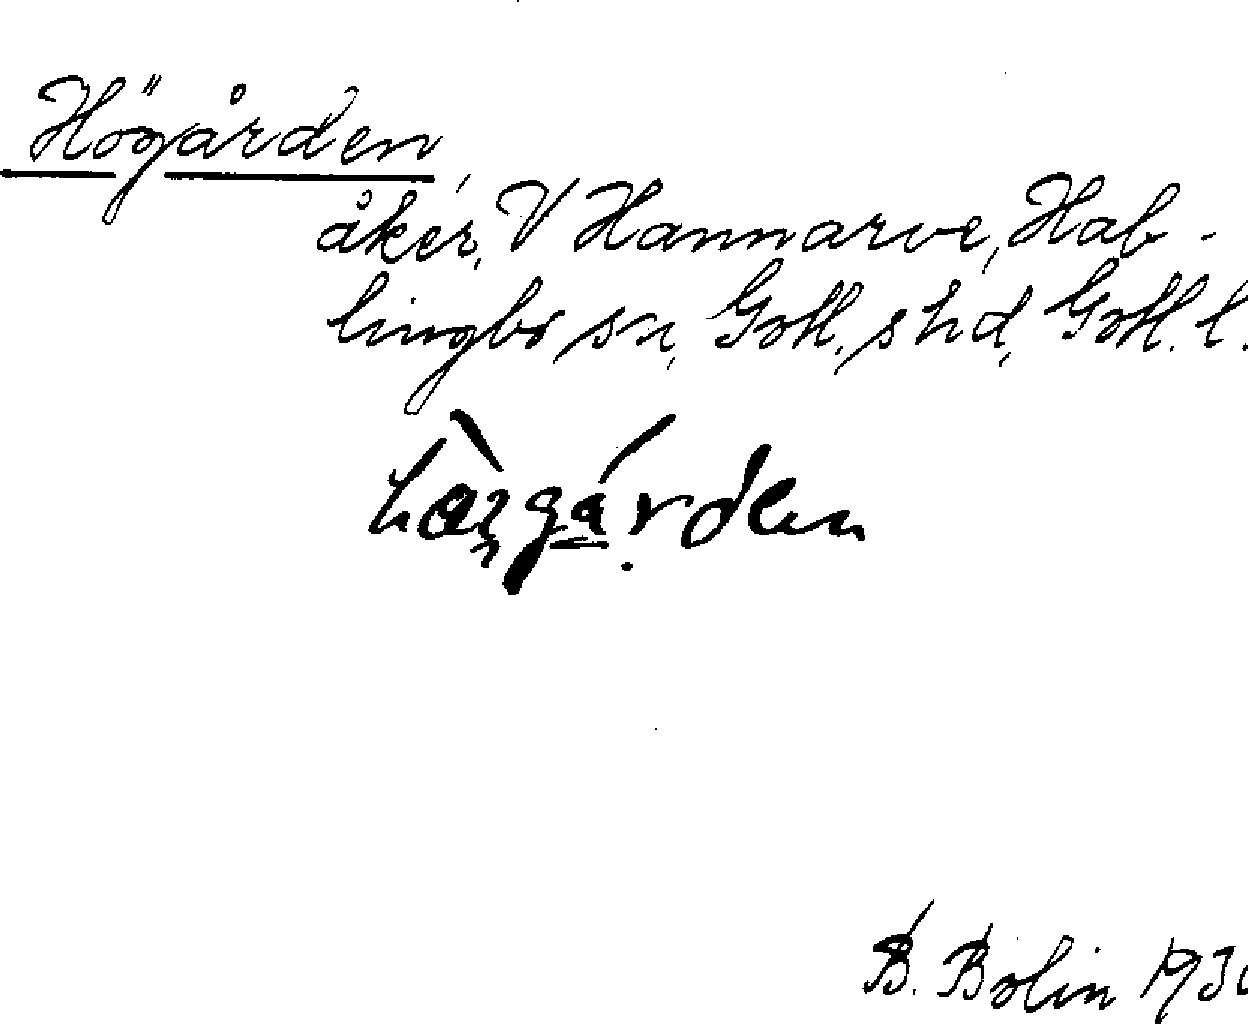 Högården,
åker, V Hannarve, Hab-
lingbo sn, Gotl. s hd, Gotl. l.
B. Bolin 193